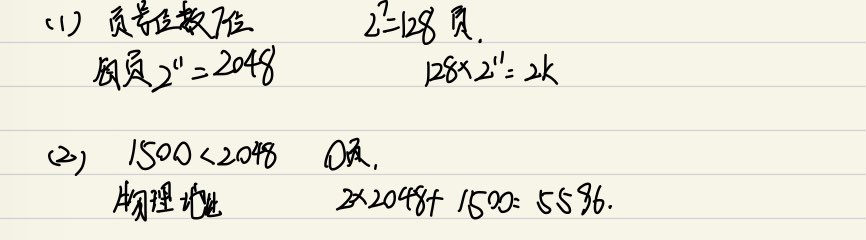 (1) 页号位数7位 2⁷=128 页.
每页 2¹¹ = 2048 128×2¹¹=2k
(2) 1500<2048 0页.
物理地址 2×2048+1500=5596.